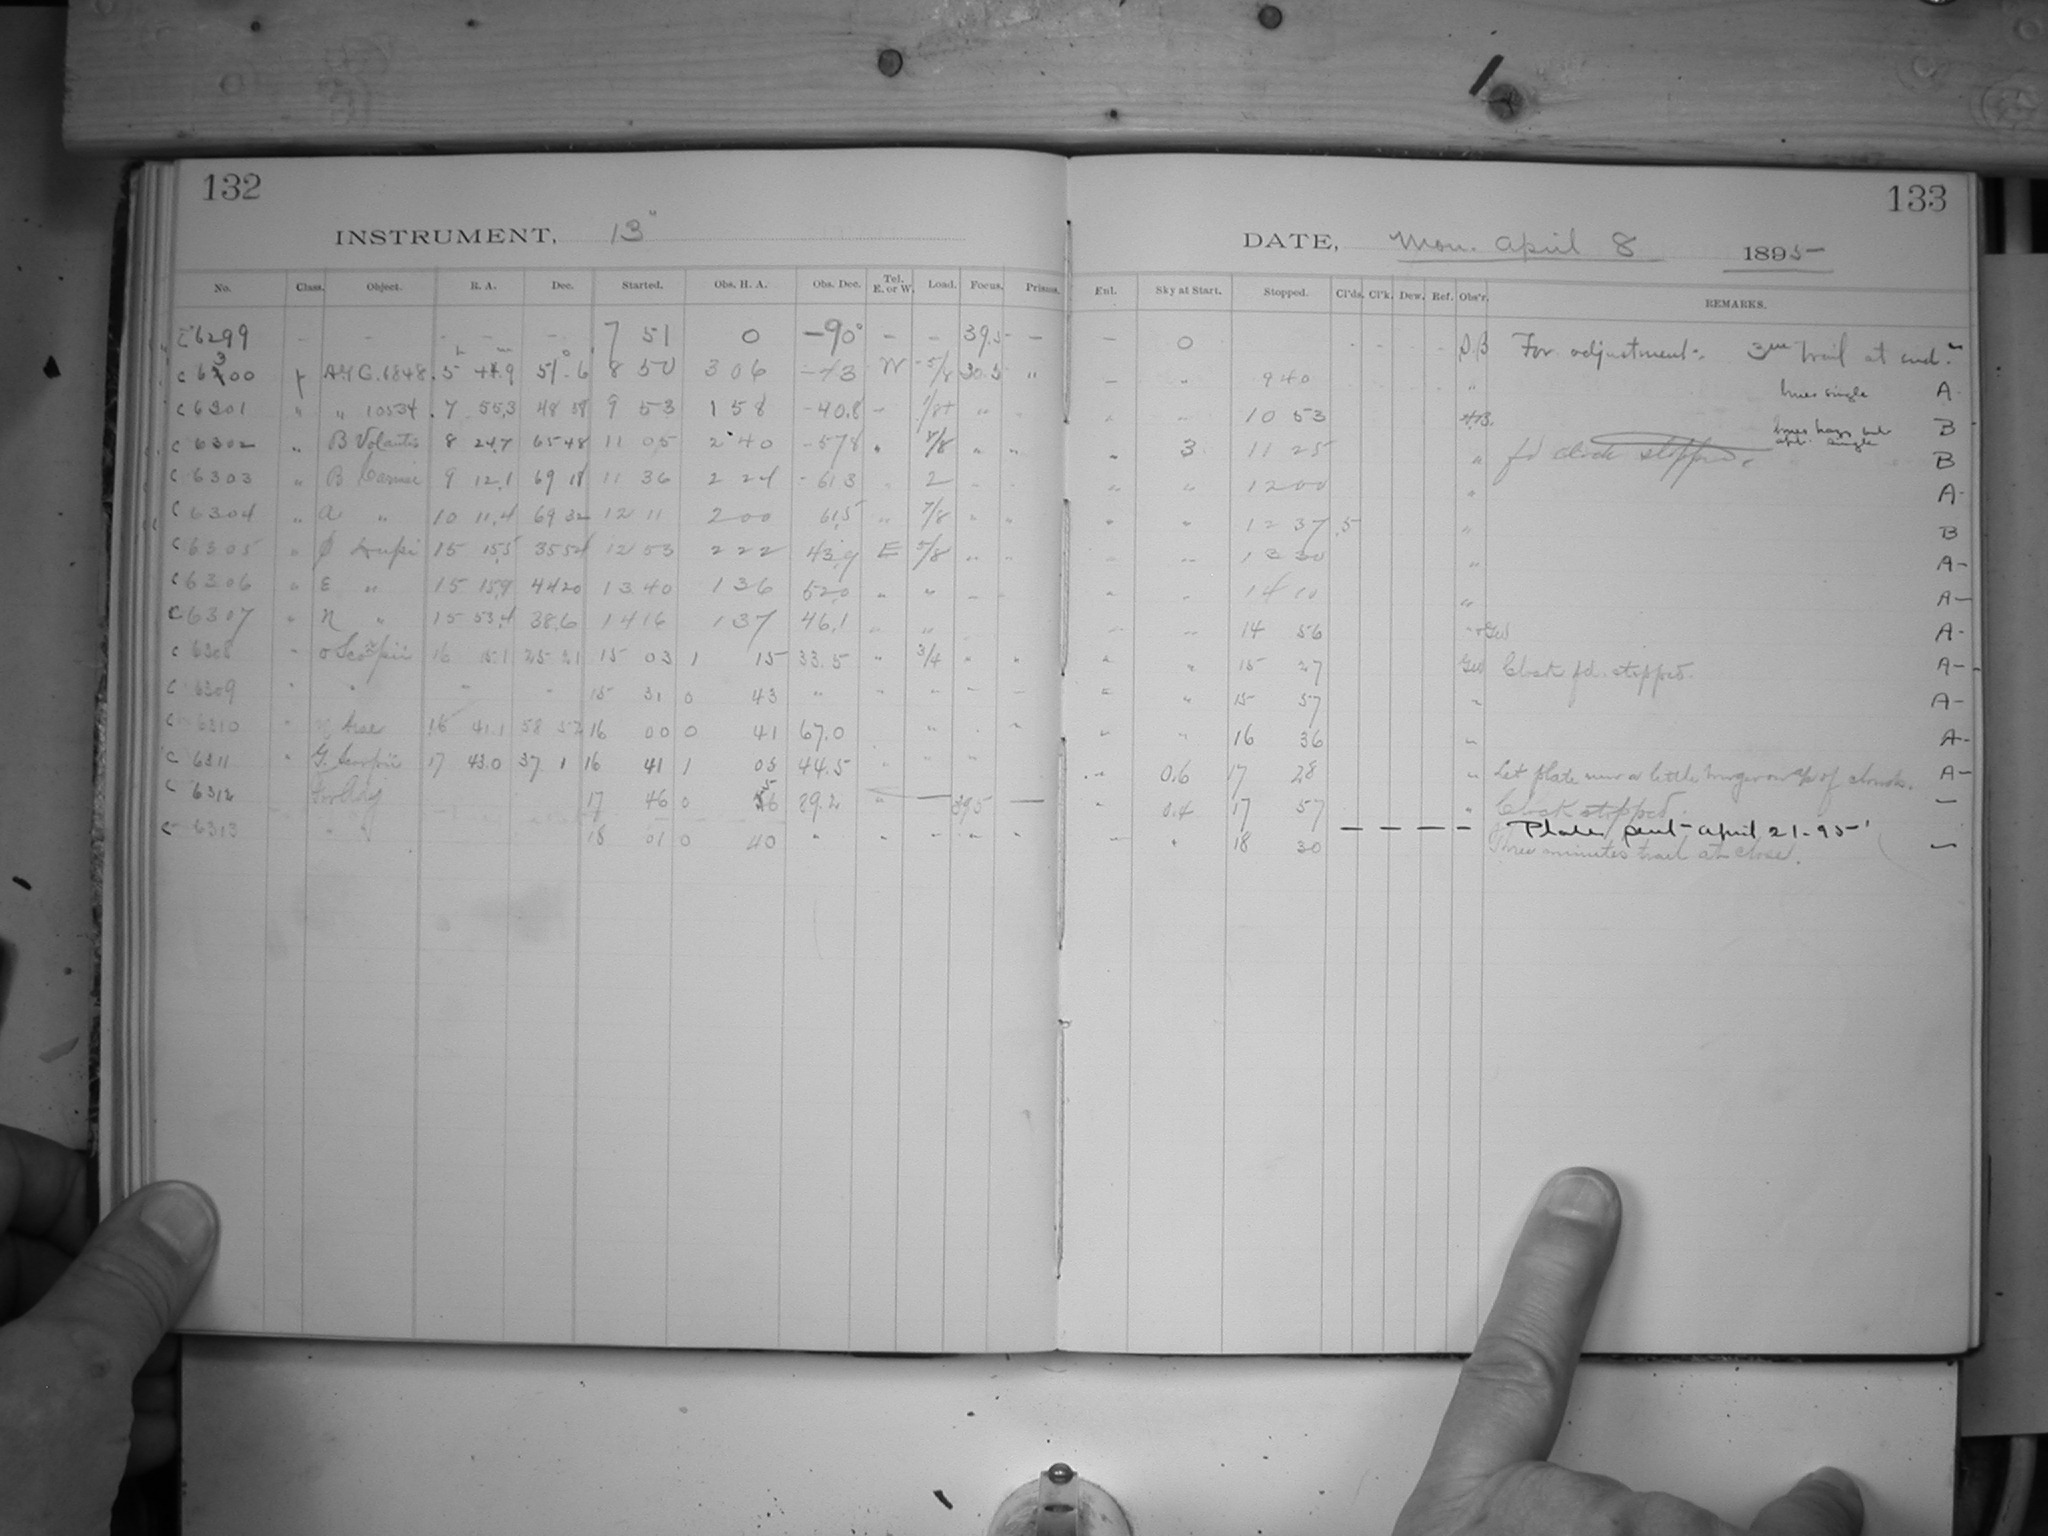 132
INSTRUMENT, 13"
No. Class. Object. R. A. Dec. Started. Obs. H. A. Obs. Dec. Tel. E. or W. Load. Focus. Prisms.
C 6299 - - - - - 7 51 0 -90° - - 39.5 -
C 6300 8 50 3 06 -43 W 5/8 "
C 6301 " " 10534 7 55.3 48 58 9 53 1 58 -40.8 "
C 6302 " B Volantis 8 24.7 65 48 11 05 2 40 -578 " 7/8 " "
C 6303 " B Carinae 9 12.1 69 18 11 36 2 24 -613 2
C 6304 " a " 10 11.4 69 32 12 11 2 00 61.5 " 7/8 " "
C 6305 " φ Lupi 15 15.5 35 54 12 53 2 22 43.9 E 5/8 " "
C 6306 " ε " 15 15.9 44 20 13 40 1 36 52.0 " "
C 6307 " η " 15 53.4 38.6 14 16 1 37 46.1 " "
C 6308 " σ Scorpii 16 15.1 25 21 15 03 1 15 33.5 " 3/4 " "
C 6309 " " " " 15 31 0 43 " " " " "
C 6310 " η Arae 16 41.1 58 52 16 00 0 41 67.0 " "
C 6311 " G. Scorpii 17 43.0 37 1 16 41 1 05 44.5 " " "
C 6312 For Adj 17 46 0 89.2 " - 39.5 -
C 6313 " " 18 01 0 40 " " " " "
133
DATE, Mon. April 8 1895
Enl. Sky at Start. Stopped. Cl'ds. Cl'k. Dew. Ref. Obs'r. REMARKS.
- 0 For adjustment. 3 trail at end.
- " 9 40 " lines single A-
" 10 53 B
" 3 11 25 " fd clock stopped. B
" " 12 00 " A-
" " 12 37 .5 " B
" " 13 30 " A-
" " 14 10 " A-
" " 14 56 A-
" " 15 27 Clock fd. stopped. A-
" " 15 57 " A-
" " 16 36 " A-
0.6 17 28 " Let plate run a little longer on a/c of clouds. A-
" 0.4 17 57 " Clock stopped. -
- - - - Plates sent April 21-95
" " 18 30 Three minutes trail at close. -